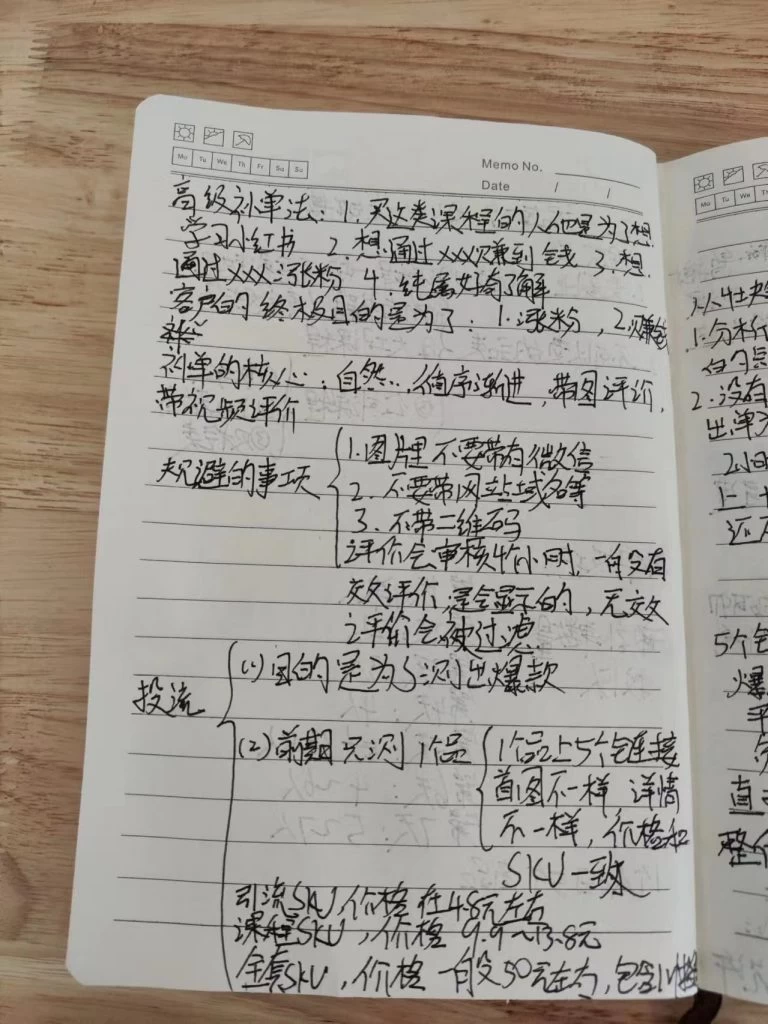 Mo Tu We Th Fr Sa Su
Memo No.
Date / /
高级补单法：1. 买这类课程的人他是为了想
学习小红书 2. 想通过xxx赚到钱 3. 想
通过xxx涨粉 4. 纯属好奇了解
客户的终极目的是为了：1. 涨粉，2. 赚钱
补单的核心：自然..，循序渐进，带图评价，
带视频评价
规避的事项
1. 图片里不要带有微信
2. 不要带网站域名等
3. 不带二维码
评价会审核4个小时，一般没有
效评价，是会显示的，无效
评价会被过滤
投流
(1) 目的是为了测出爆款
(2) 前期只测1个品
1个品上5个链接
首图不一样 详情
不一样，价格和
SKU一致
引流SKU，价格在4.8元左右
课程SKU，价格9.9~13.8元
全套SKU，价格一般50元左右，包含
Mo Tu We Th
1. 分析
2. 没有
出单
2小时
5个链
爆
平
直
整个